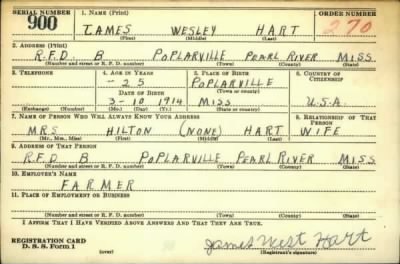 SERIAL NUMBER 1. NAME (Print) ORDER NUMBER
900 JAMES WESLEY HART 270
(First) (Middle) (Last)
2. ADDRESS (Print)
R.F.D. B POPLARVILLE PEARL RIVER MISS.
(Number and street or R. F. D. number) (Town) (County) (State)
3. TELEPHONE 4. AGE IN YEARS 5. PLACE OF BIRTH 6. COUNTRY OF CITIZENSHIP
25 POPLARVILLE
(Town or county)
DATE OF BIRTH
3-10 1914 MISS U.S.A.
(Exchange) (Number) (Mo.) (Day) (Yr.) (State or country)
7. NAME OF PERSON WHO WILL ALWAYS KNOW YOUR ADDRESS 8. RELATIONSHIP OF THAT PERSON
MRS HILTON (NONE) HART WIFE
(Mr., Mrs., Miss) (First) (Middle) (Last)
9. ADDRESS OF THAT PERSON
R.F.D. B POPLARVILLE PEARL RIVER MISS.
(Number and street or R. F. D. number) (Town) (County) (State)
10. EMPLOYER'S NAME
FARMER
11. PLACE OF EMPLOYMENT OR BUSINESS
(Number and street or R. F. D. number) (Town) (County) (State)
I AFFIRM THAT I HAVE VERIFIED ABOVE ANSWERS AND THAT THEY ARE TRUE.
REGISTRATION CARD
D. S. S. Form 1 (over) James West Hart
(Registrant's signature)